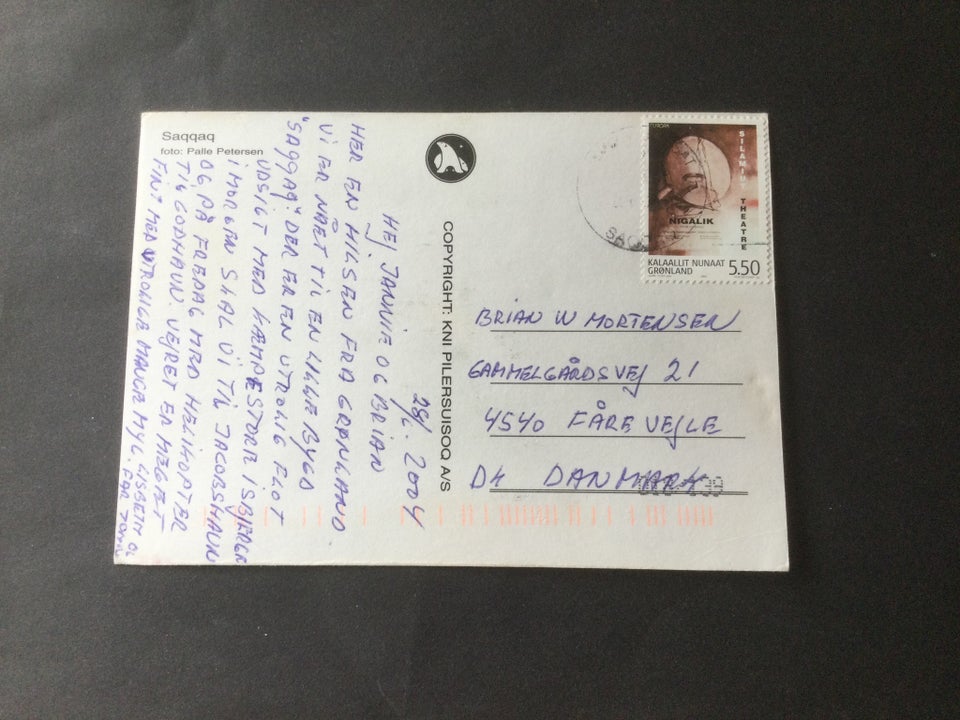 Saqqaq
foto: Palle Petersen
28/6. 2004
HEJ JANNIE OG BRIAN
HER EN HILSEN FRA GRØNLAND
VI ER NÅET TIL EN LILLE BYGD
"SAQQAQ" DER ER EN UTROLIG FLOT
UDSIGT MED KÆMPESTOR ISBJERGE
I MORGEN SKAL VI TIL JACOBSHAVN
OG PÅ FREDAG MED HELIKOPTER
TIL GODHAVN. VEJRET ER MEGET
FINT MED UTROLIGE MANGE MYG. LISBETH OG
COPYRIGHT: KNI PILERSUISOQ A/S
EUROPA
SILAMIUT THEATRE
NIGALIK
KALAALLIT NUNAAT
GRØNLAND 5.50
BRIAN W MORTENSEN
GAMMELGÅRDSVEJ 21
4540 FÅREVEJLE
DK DANMARK